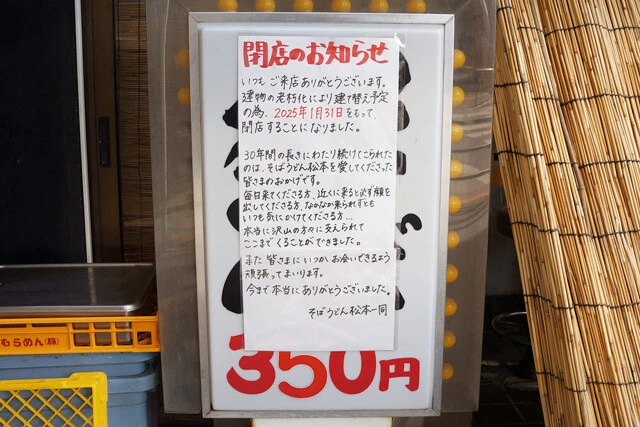 閉店のお知らせ
いつもご来店ありがとうございます。
建物の老朽化により建て替え予定
の為、2025年1月31日をもって、
閉店することになりました。
30年間の長きにわたり続けてこられた
のは、そばうどん松本を愛してくださった
皆さまのおかげです。
毎日来てくださる方、近くに来ると必ず顔を
出してくださる方、なかなか来られずとも
いつも気にかけてくださる方…
本当に沢山の方々に支えられて
ここまでくることができました。
また皆さまにいつかお会いできるよう
頑張ってまいります。
今まで本当にありがとうございました。
そばうどん松本一同
350円
むらめん(株)